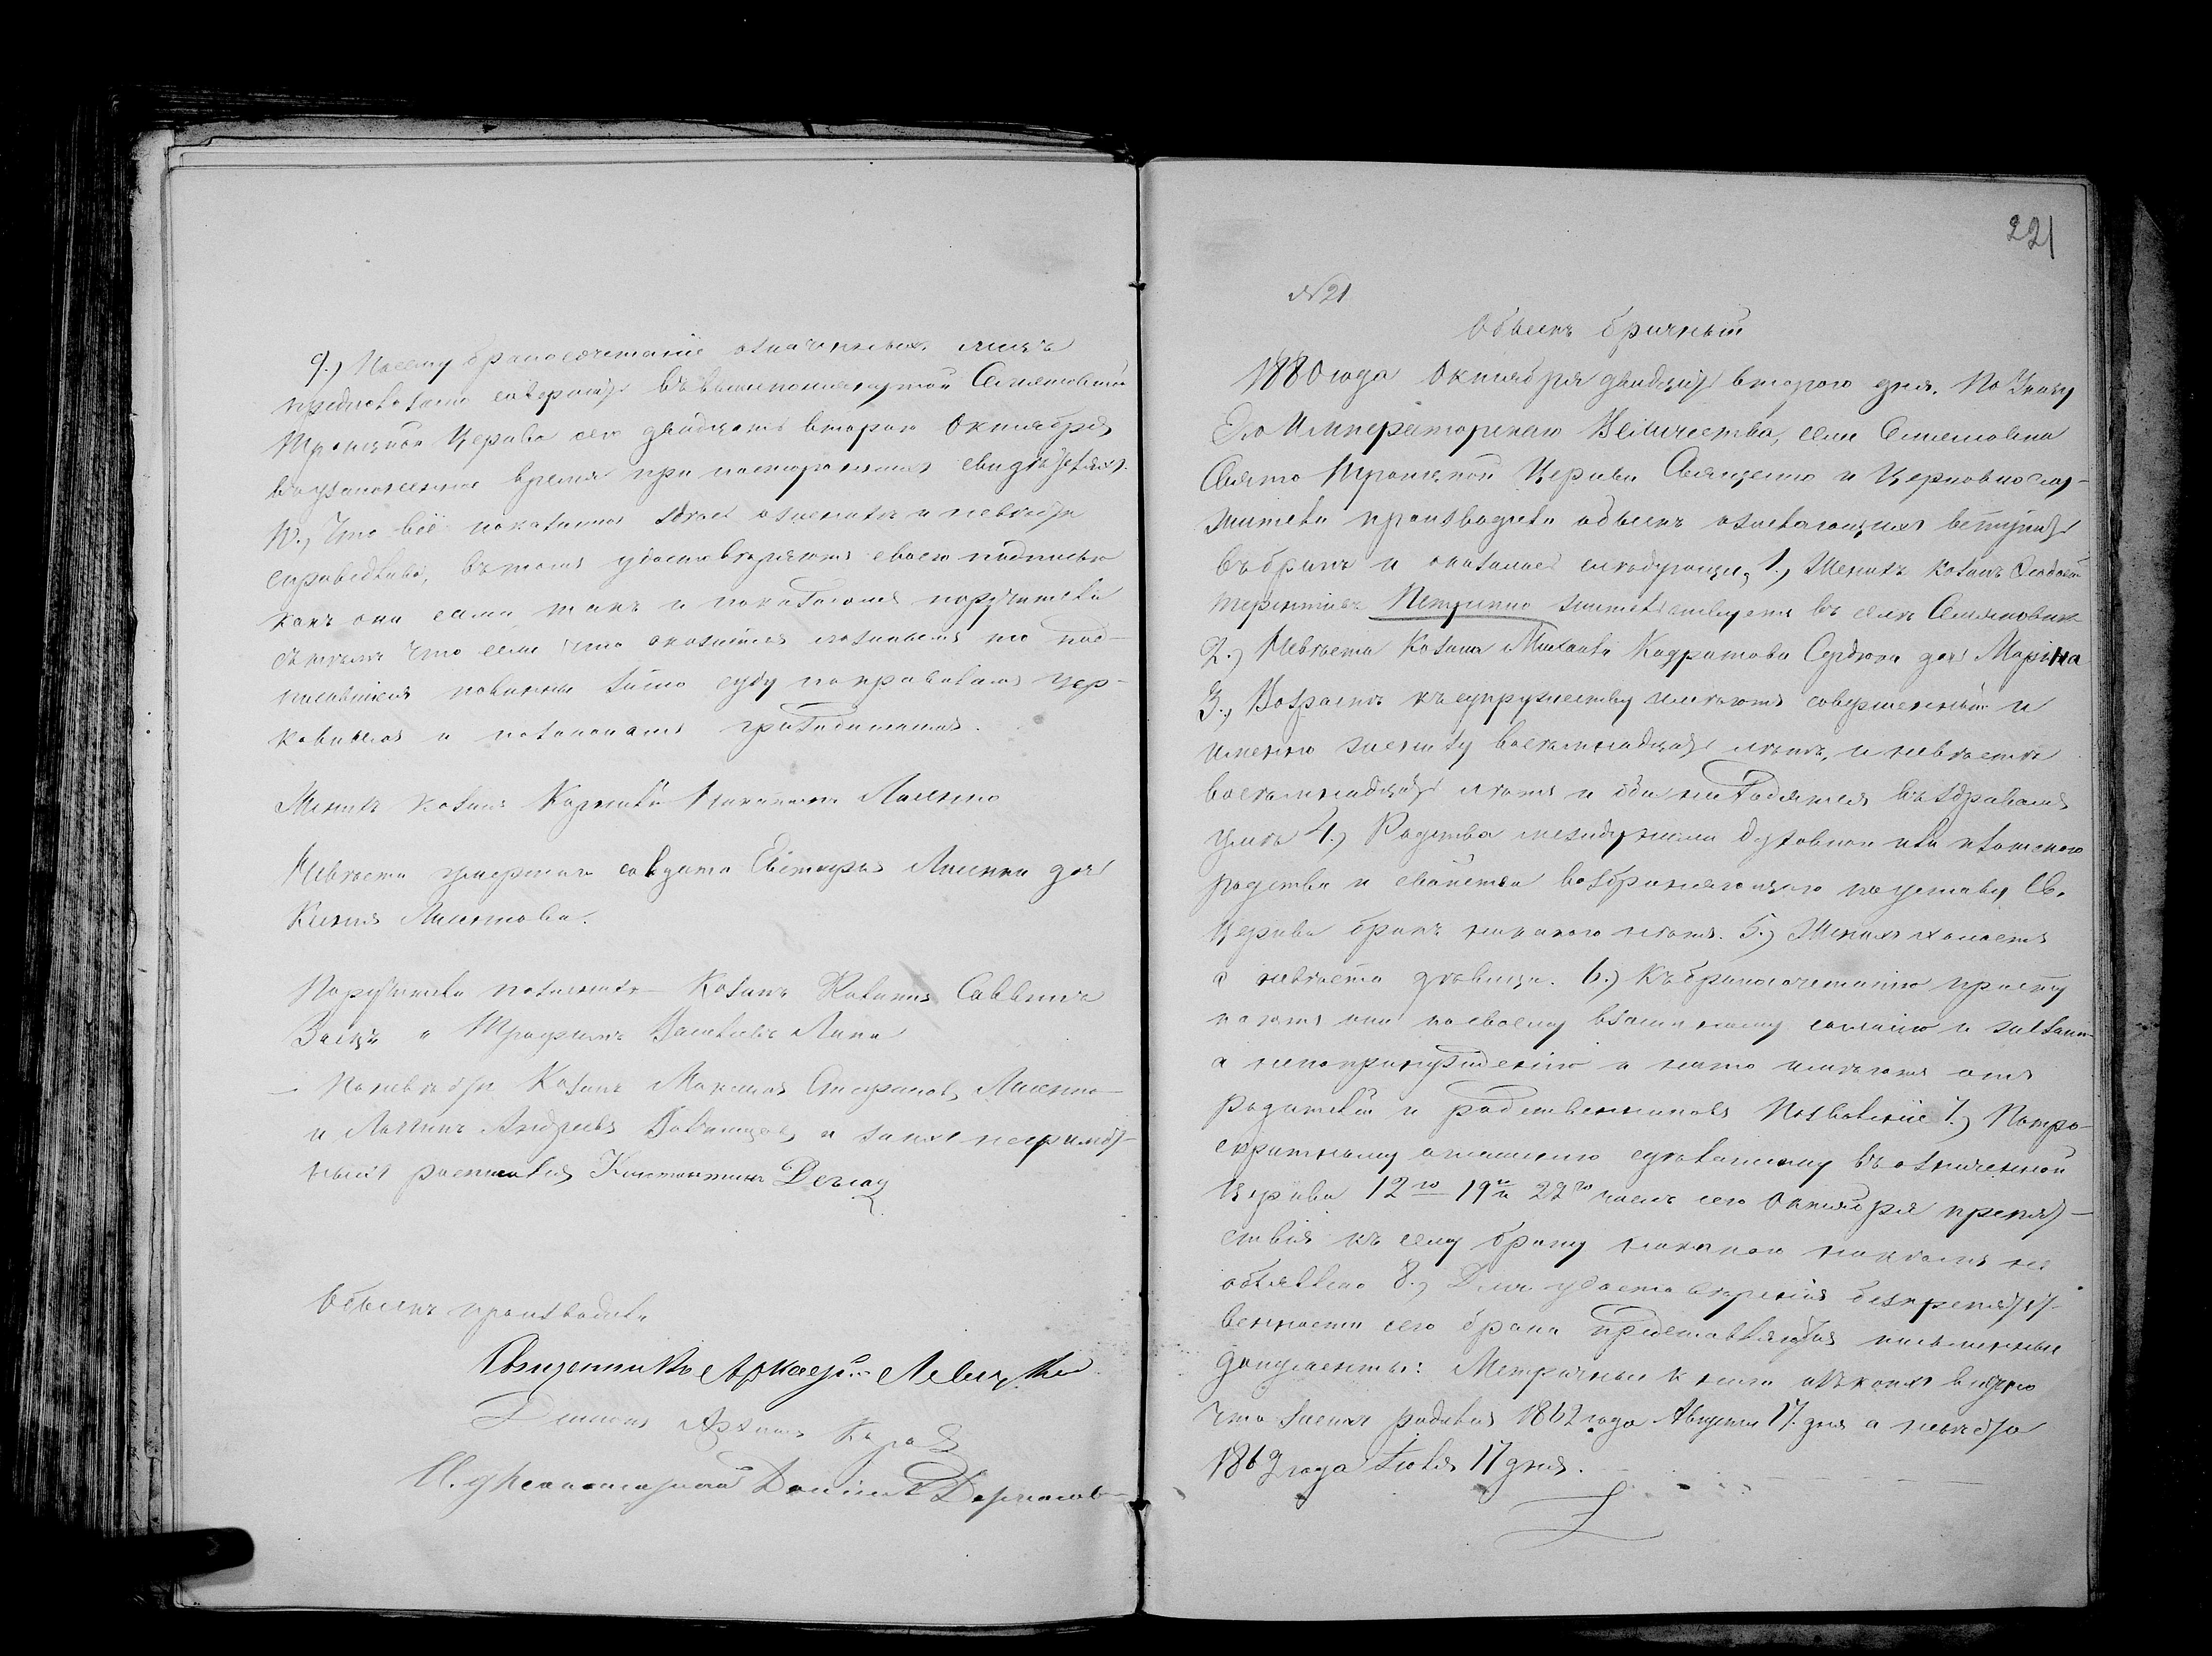 9.) Посему бракосочетаніе означенныхъ лицъ
предположено совершить въ вышепомянутой Семяновской
Троицкой Церкви сего двадцать второго Октября
въ узаконенное время при постороннихъ свидѣтеляхъ.
10., Что всё показанное здѣсь о женихѣ и невѣстѣ
справедливо, въ томъ удостовѣряютъ своею подписью
какъ они сами такъ и показатели поручители
съ тѣмъ что если что окажется ложнымъ то под-
писавшіеся повинны за то суду по правиламъ цер-
ковнымъ и по законамъ гражданскимъ.
Женихъ козакъ Корнилій Лисенко
Невѣста умершаго солдата Евстафія Лисенка дочь
Ксенія
Поручители по женихѣ Козакъ Саввинъ
Заецъ и Трофимъ Васильевъ
– По невѣстѣ Козакъ Максимъ Стефановъ Лисенко
и Логинъ Андреевъ а за нихъ неграмот-
ныхъ росписался Константинъ
Обыскъ производили
Священникъ Аркадій Левицкій
Діаконъ
И. д. псаломщика
221
№ 21
Обыскъ брачный
1880 года Октября двадцать второго дня. По Указу
Его Императорскаго Величества, села Семеновки
Свято Троицкой Церкви Священно и Церковнослу-
жители производили обыскъ о желающихъ вступить
въ бракъ и оказалось слѣдующее, 1., Женихъ козакъ
Терентіевъ Петренко жительствуетъ въ селѣ Семяновкѣ
2.) Невѣста Козака Михаила Кодратова Сердюка дочь Марина
3., Возрастъ къ супружеству имѣютъ совершенный и
именно жениху восемнадцать лѣтъ, и невѣстѣ
восемнадцать лѣтъ и оба находятся въ здравомъ
умѣ 4.) Родства между ними духовнаго или плотскаго
родства и свойства возбраняющаго по уставу Св.
Церкви бракъ никакого нѣтъ. 5.) Женихъ холостъ
а невѣста дѣвица. 6.) Къ бракосочетанію присту
паютъ они по своему взаимному согласію и желанію
а не по принужденію и на то имѣютъ отъ
родителей и родственниковъ позволеніе 7.) По тро-
екратному оглашенію сдѣланному въ означенной
Церкви 12го 19го и 22го чиселъ сего Октября препят-
ствія къ сему браку никакого никѣмъ не
объявлено 8.) Для удостовѣренія безпрепятст-
венности сего брака представляются письменные
документы: Метричныя книги изъ коихъ видно
что женихъ родился 1862 года Августа 17 дня а невѣста
1862 года Іюля 17 дня.